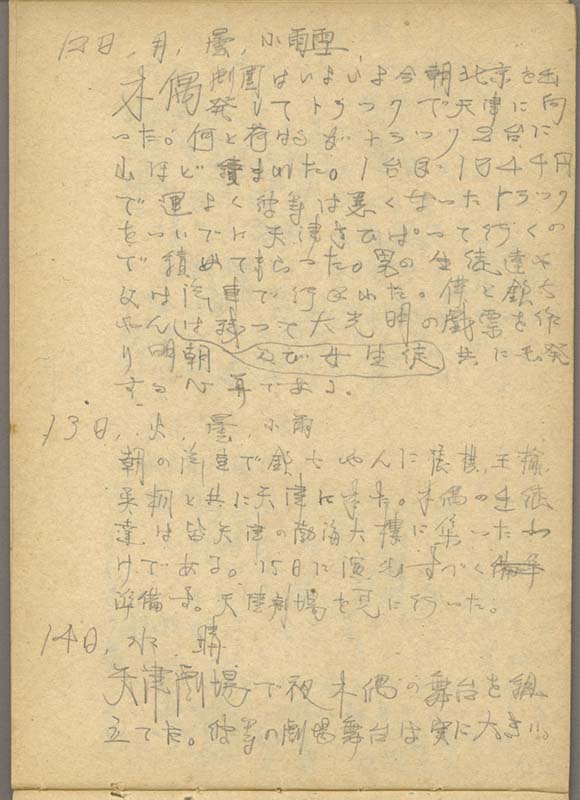 12日, 月, 曇, 小雨雪
木偶劇団はいよいよ今朝北京を出
発してトラックで天津に向
った。何と荷はトラック2台に
山ほど積まれた。1台目・1044円
で運よく彼等は悪くなったトラック
をついでに天津までひぱって行くの
で積めてもらった。男の生徒達や
父は汽車で行かれた。僕と銀七
やんは残って大光明の戯票を作
り明朝及び女生徒共に出発
する心算である。
13日, 火, 曇, 小雨
朝の汽車で銀七やんに
と共に天津に来た。木偶の生徒
達は皆天津の渤海大樓に集ったわ
けである。15日に演出すべく
準備する。天津劇場を見に行った。
14日, 水 晴
天津劇場で夜木偶の舞台を組
立てた。彼等の劇場舞台は実に大きい。